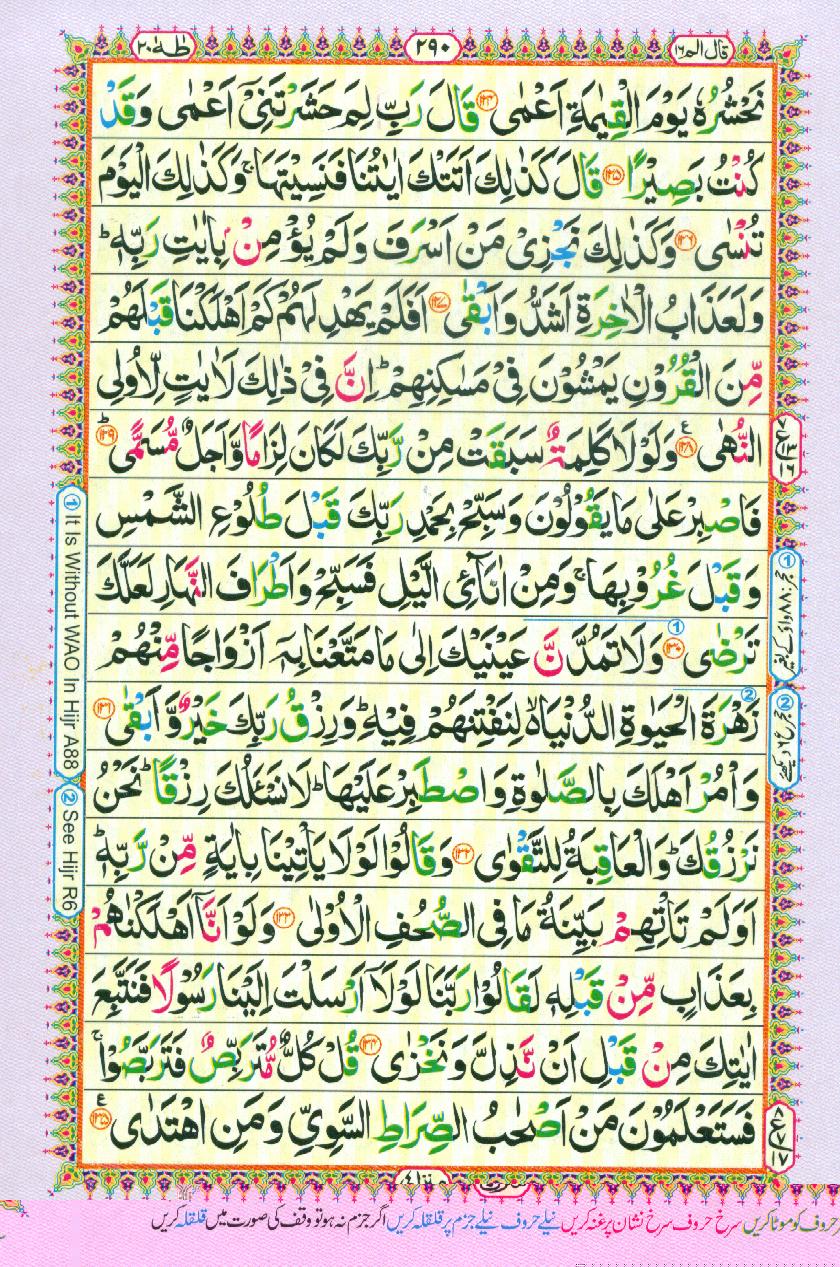 قال الم ١٦
٢٩٠
طٰهٰ ٢٠
نَحْشُرُهٗ يَوْمَ الْقِيٰمَةِ اَعْمٰى ﴿۱۲۴﴾ قَالَ رَبِّ لِمَ حَشَرْتَنِيْۤ اَعْمٰى وَقَدْ
كُنْتُ بَصِيْرًا ﴿۱۲۵﴾ قَالَ كَذٰلِكَ اَتَتْكَ اٰيٰتُنَا فَنَسِيْتَهَا ۚ وَكَذٰلِكَ الْيَوْمَ
تُنْسٰى ﴿۱۲۶﴾ وَكَذٰلِكَ نَجْزِيْ مَنْ اَسْرَفَ وَلَمْ يُؤْمِنْۢ بِاٰيٰتِ رَبِّهٖ ؕ
وَلَعَذَابُ الْاٰخِرَةِ اَشَدُّ وَاَبْقٰى ﴿۱۲۷﴾ اَفَلَمْ يَهْدِ لَهُمْ كَمْ اَهْلَكْنَا قَبْلَهُمْ
مِّنَ الْقُرُوْنِ يَمْشُوْنَ فِيْ مَسٰكِنِهِمْ ؕ اِنَّ فِيْ ذٰلِكَ لَاٰيٰتٍ لِّاُولِي
النُّهٰى ﴿۱۲۸﴾ ع وَلَوْلَا كَلِمَةٌ سَبَقَتْ مِنْ رَّبِّكَ لَكَانَ لِزَامًا وَّاَجَلٌ مُّسَمًّى ؕ ﴿۱۲۹﴾
فَاصْبِرْ عَلٰى مَا يَقُوْلُوْنَ وَسَبِّحْ بِحَمْدِ رَبِّكَ قَبْلَ طُلُوْعِ الشَّمْسِ
وَقَبْلَ غُرُوْبِهَا ۚ وَمِنْ اٰنَآئِ الَّيْلِ فَسَبِّحْ وَاَطْرَافَ النَّهَارِ لَعَلَّكَ
تَرْضٰى ﴿۱۳۰﴾ وَلَا تَمُدَّنَّ عَيْنَيْكَ اِلٰى مَا مَتَّعْنَا بِهٖۤ اَزْوَاجًا مِّنْهُمْ
زَهْرَةَ الْحَيٰوةِ الدُّنْيَا ۙ لِنَفْتِنَهُمْ فِيْهِ ؕ وَرِزْقُ رَبِّكَ خَيْرٌ وَّاَبْقٰى ﴿۱۳۱﴾
وَاْمُرْ اَهْلَكَ بِالصَّلٰوةِ وَاصْطَبِرْ عَلَيْهَا ؕ لَا نَسْـَٔلُكَ رِزْقًا ؕ نَحْنُ
نَرْزُقُكَ ؕ وَالْعَاقِبَةُ لِلتَّقْوٰى ﴿۱۳۲﴾ وَقَالُوْا لَوْلَا يَاْتِيْنَا بِاٰيَةٍ مِّنْ رَّبِّهٖ ؕ
اَوَلَمْ تَاْتِهِمْ بَيِّنَةُ مَا فِي الصُّحُفِ الْاُوْلٰى ﴿۱۳۳﴾ وَلَوْ اَنَّاۤ اَهْلَكْنٰهُمْ
بِعَذَابٍ مِّنْ قَبْلِهٖ لَقَالُوْا رَبَّنَا لَوْلَاۤ اَرْسَلْتَ اِلَيْنَا رَسُوْلًا فَنَتَّبِعَ
اٰيٰتِكَ مِنْ قَبْلِ اَنْ نَّذِلَّ وَنَخْزٰى ﴿۱۳۴﴾ قُلْ كُلٌّ مُّتَرَبِّصٌ فَتَرَبَّصُوْا ۚ
فَسَتَعْلَمُوْنَ مَنْ اَصْحٰبُ الصِّرَاطِ السَّوِيِّ وَمَنِ اهْتَدٰى ﴿۱۳۵﴾ ع
① It Is Without WAO In Hijr A88 ② See Hijr R6
① حجر ۸۸ واؤ کے بغیر
② حجر ع ۶ دیکھئے
منزل ٤
حروف کو موٹا کریں سرخ حروف سرخ نشان پر غنہ کریں نیلے حروف نیلے جزم پر قلقلہ کریں اگر جزم نہ ہو تو وقف کی صورت میں قلقلہ کریں